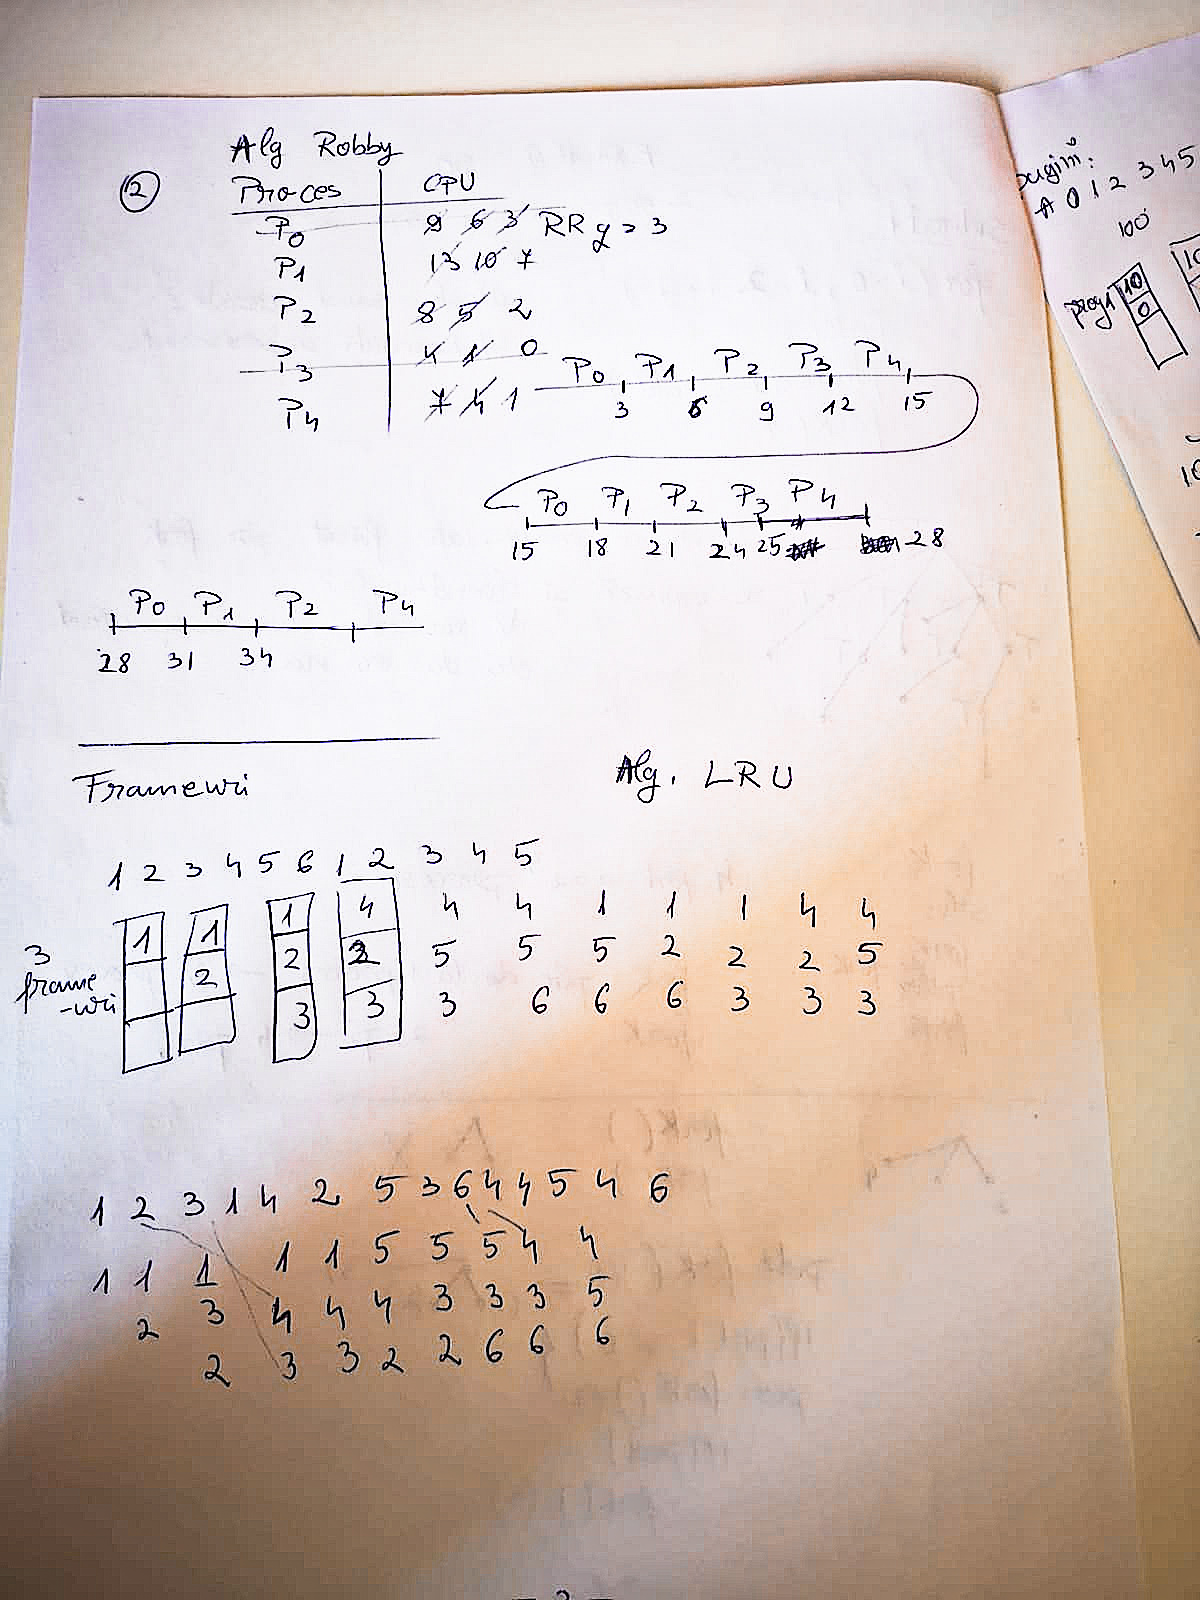 Alg Robby
② Proces CPU
P0 9 6 3 RR q = 3
P1 13 10 7
P2 8 5 2
P3 4 1 0
P4 7 4 1
P0 P1 P2 P3 P4
3 6 9 12 15
P0 P1 P2 P3 P4
15 18 21 24 25 28
P0 P1 P2 P4
28 31 34
Frameuri
Alg. LRU
1 2 3 4 5 6 1 2 3 4 5
1 1 1 4 4 4 1 1 1 4 4
2 2 2 5 5 5 2 2 2 5
3 3 3 6 6 6 3 3 3
3
frame
-uri
1 2 3 1 4 2 5 3 6 4 4 5 4 6
1 1 1 1 1 5 5 5 4 4
2 3 4 4 4 3 3 3 5
2 3 3 2 2 6 6 6
pagini:
A 0 1 2 3 4 5
100
prog1 10
0
10
10